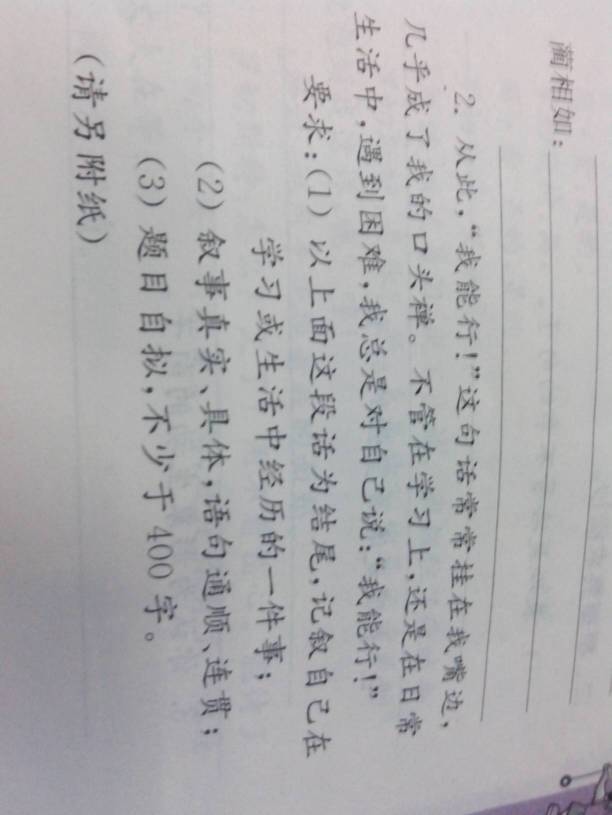 蔺相如：
2. 从此，“我能行！”这句话常常挂在我嘴边，
几乎成了我的口头禅。不管在学习上，还是在日常
生活中，遇到困难，我总是对自己说：“我能行！”
要求：(1) 以上面这段话为结尾，记叙自己在
学习或生活中经历的一件事；
(2) 叙事真实、具体，语句通顺、连贯；
(3) 题目自拟，不少于 400 字。
(请另附纸)